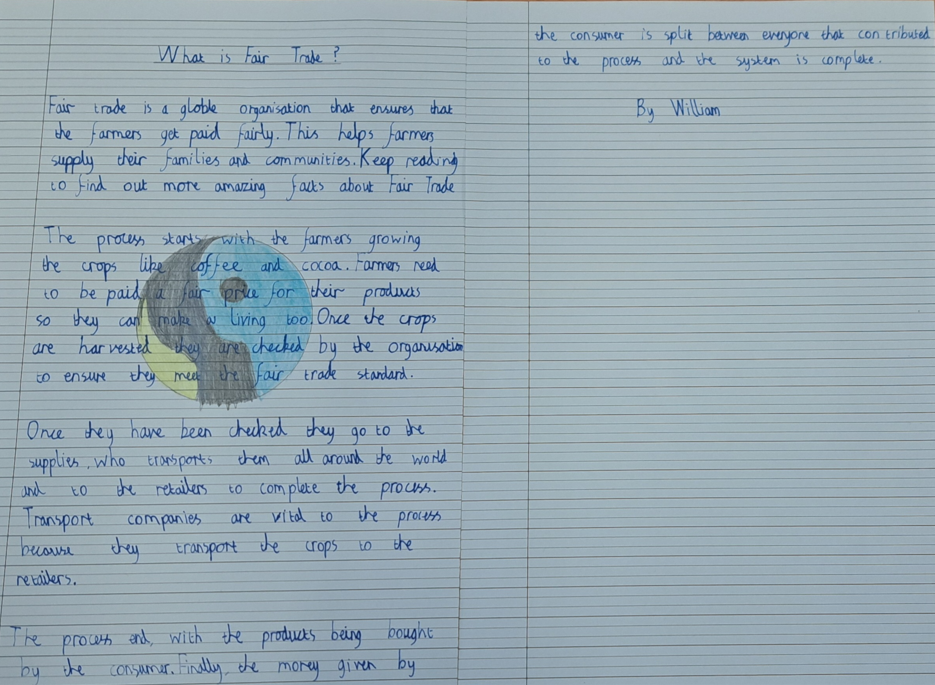 What is Fair Trade?
Fair trade is a globle organisation that ensures that
the farmers get paid fairly. This helps farmers
supply their families and communities. Keep reading
to find out more amazing facts about Fair Trade
The process starts with the farmers growing
the crops like coffee and cocoa. Farmers need
to be paid a fair price for their products
so they can make a living too. Once the crops
are harvested they are checked by the organisation
to ensure they meet the fair trade standard.
Once they have been checked they go to the
supplies, who transports them all around the world
and to the retailers to complete the process.
Transport companies are vital to the process
because they transport the crops to the
retailers.
The process end, with the products being bought
by the consumer. Finally, the money given by
the consumer is split between everyone that contributed
to the process and the system is complete.
By William